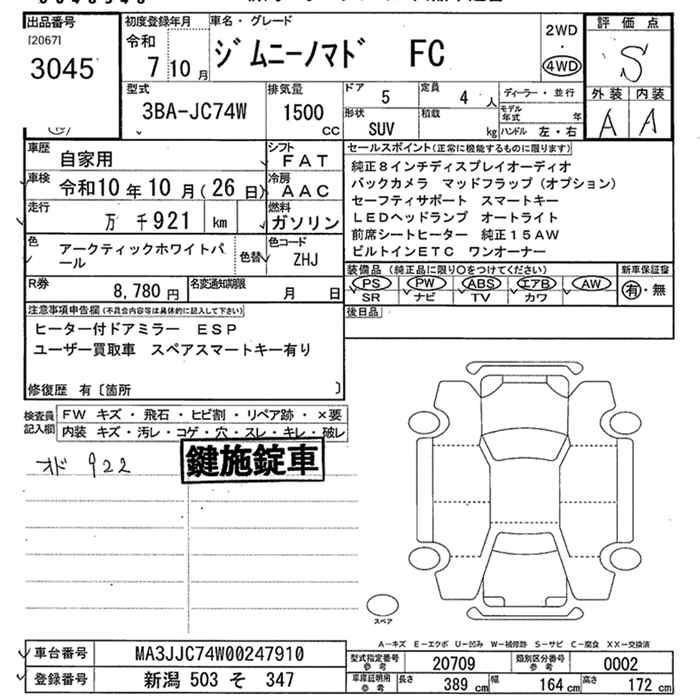 出品番号
[2067]
3045
初度登録年月
令和
7 10月
車名・グレード
ジムニーノマド FC
2WD
・
4WD
評価点
S
外装 内装
A A
型式
3BA-JC74W
排気量
1500
CC
ドア
5
定員
4 人
形状
SUV
積載
kg
ディーラー・並行
モデル年式 年
ハンドル 左・右
車歴
自家用
シフト
FAT
車検
令和10年10月(26日)
冷房
AAC
走行
万 千921 km
燃料
ガソリン
色
アークティックホワイトパール
色替
色コード
ZHJ
R券
8,780円
名変通知期限
月 日
セールスポイント(正常に機能するものに限ります)
純正8インチディスプレイオーディオ
バックカメラ マッドフラップ(オプション)
セーフティサポート スマートキー
LEDヘッドランプ オートライト
前席シートヒーター 純正15AW
ビルトインETC ワンオーナー
装備品(純正品に限り○をつけてください)
PS PW ABS エアB AW
SR ナビ TV カワ
新車保証書
有・無
後日品
注意事項申告欄(不具合内容等は具体的に記入して下さい)
ヒーター付ドアミラー ESP
ユーザー買取車 スペアスマートキー有り
修復歴 有〔箇所 〕
検査員記入欄
FW キズ・飛石・ヒビ割・リペア跡・×要
内装 キズ・汚レ・コゲ・穴・スレ・キレ・破レ
オド 922
鍵施錠車
スペア
A−キズ E−エクボ U−凹み W−補修跡 S−サビ C−腐食 XX−交換済
車台番号
MA3JJC74W00247910
登録番号
新潟 503 そ 347
型式指定番号
参考
20709
類別区分番号
参考
0002
車庫証明用
参考
長さ
389 cm
幅
164 cm
高さ
172 cm